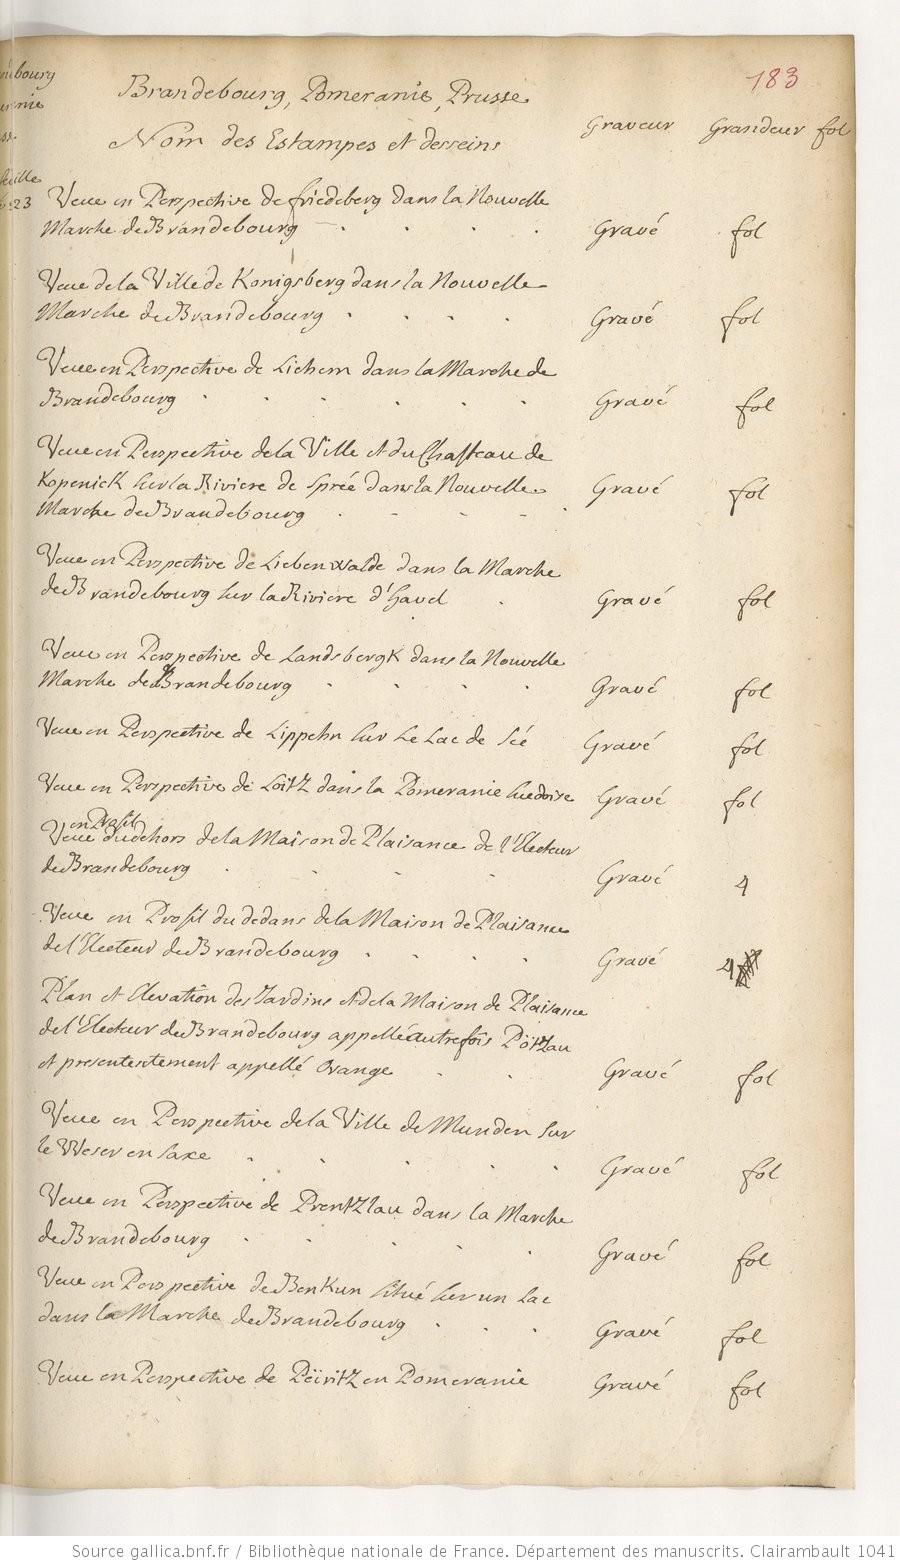 183
Brandebourg, Pomeranie, Prusse
Nom des Estampes et desseins Graveur Grandeur fol
Veue en Perspective de friedeberg dans la Nouvelle
Marche de Brandebourg Gravé fol
Veue de la Ville de Konigsberg dans la Nouvelle
Marche de Brandebourg Gravé fol
Veue en Perspective de Lichem dans la Marche de
Brandebourg Gravé fol
Veue en Perspective de la Ville et du Chasteau de
Kopenick sur la Riviere de Sprée dans la Nouvelle
Marche de Brandebourg Gravé fol
Veue en Perspective de Liebenwalde dans la Marche
de Brandebourg sur la Riviere d'havel Gravé fol
Veue en Perspective de Landsbergk dans la Nouvelle
Marche de Brandebourg Gravé fol
Veue en Perspective de Lippehn sur Le Lac de Séé Gravé fol
Veue en Perspective de Loitz dans la Pomeranie suedoise Gravé fol
en Profil
Veue du dehors de la Maison de Plaisance de l'Electeur
de Brandebourg Gravé 4
Veue en Profil du dedans de la Maison de Plaisance
de l'Electeur de Brandebourg Gravé 4
Plan et Elevation des Jardins et de la Maison de Plaisance
de l'Electeur de Brandebourg appellé autrefois Pötzau
et presentestement appellé Orange Gravé fol
Veue en Perspective de la Ville de Munden sur
le Weser en Saxe Gravé fol
Veue en Perspective de Prentzlau dans la Marche
de Brandebourg Gravé fol
Veue en Perspective de Benkun situé sur un Lac
dans la Marche de Brandebourg Gravé fol
Veue en Perspective de Pëiritz en Pomeranie Gravé fol
Source gallica.bnf.fr / Bibliothèque nationale de France. Département des manuscrits. Clairambault 1041